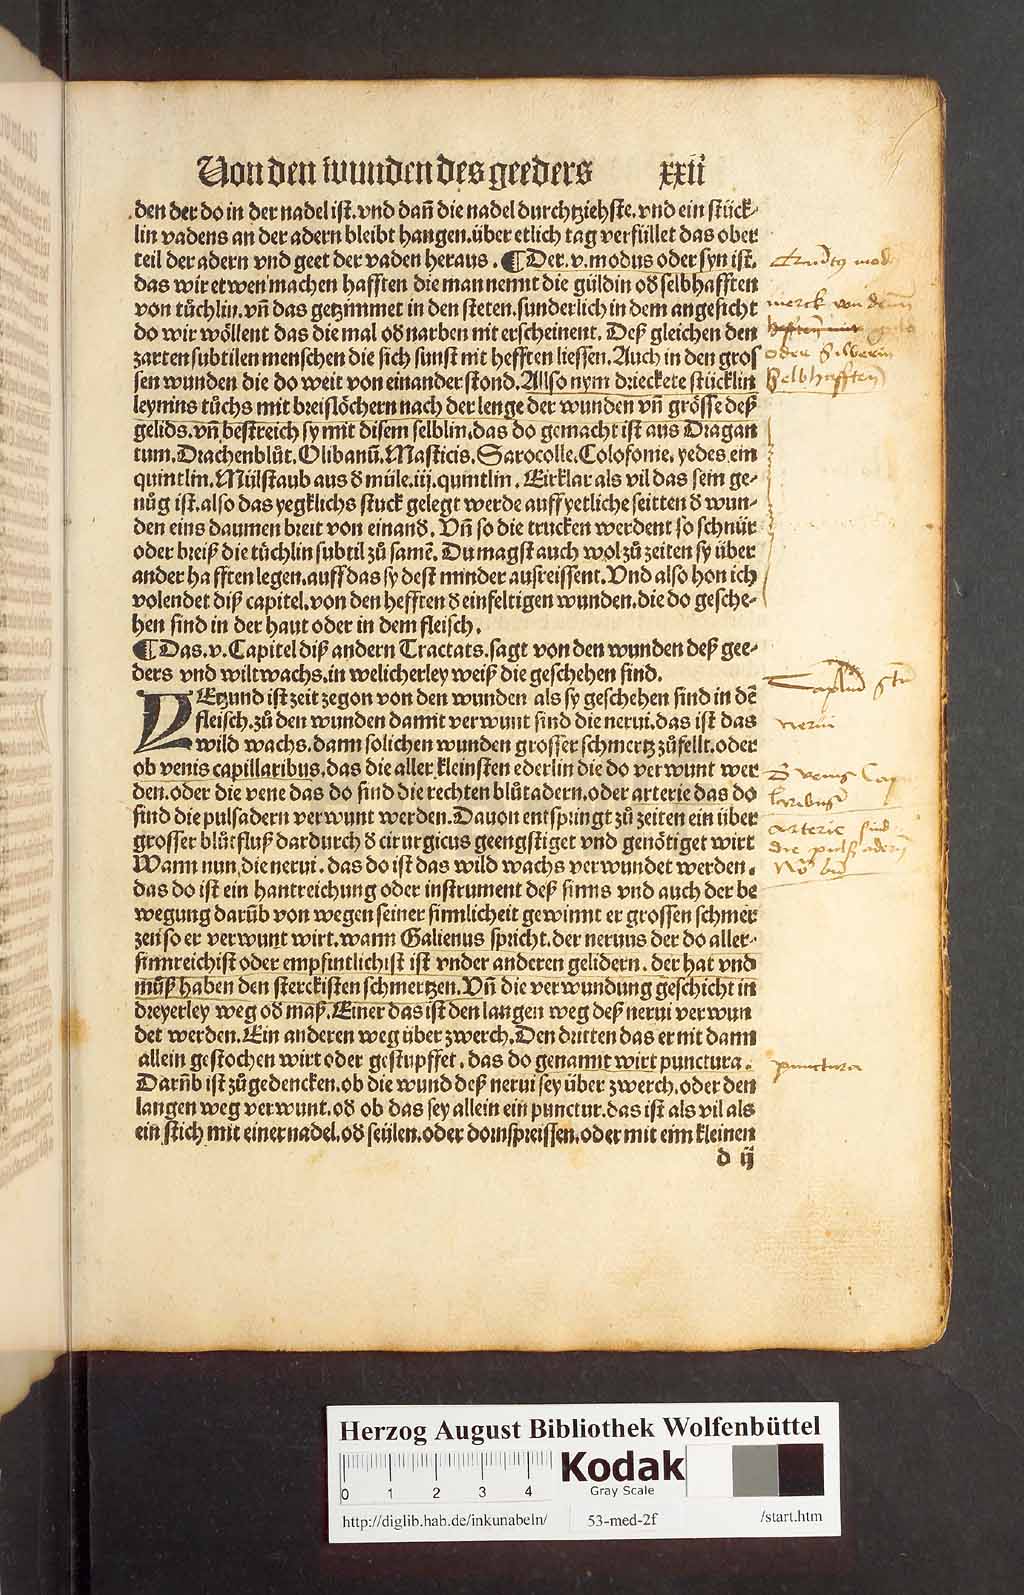 Von den wunden des geeders xxii
den der do in der nadel ist. vnd dañ die nadel durchtziehste. vnd ein stück⸗
lin vadens an der adern bleibt hangen. über etlich tag verfüllet das ober
teil der adern vnd geet der vaden heraus. ¶ Der. v. modus oder syn ist.
das wir etwen machen hafften die man nennt die güldin oď selbhafften
von tůchlin. vñ das getzimmet in den steten. sunderlich in dem angesicht
do wir wöllent das die mal oď narben nit erscheinent. Deß gleichen den
zarten subtilen menschen die sich sunst nit hefften liessen. Auch in den gros
sen wunden die do weit von einander stond. Allso nym drieckete stücklin
leynins tůchs mit breislöchern nach der lenge der wunden vñ grösse deß
gelids. vñ bestreich sy mit disem selblin. das do gemacht ist aus Dragan
tum. Drachenblůt. Olibanū. Masticis. Sarocolle. Colofonie. yedes ein
quintlin. Mülstaub aus ď müle. iij. quintlin. Eirklar als vil das sein ge⸗
nůg ist. also das yegklichs stuck gelegt werde auff yetliche seitten ď wun⸗
den eins daumen breit von einanď. Vñ so die trucken werdent so schnür
oder breiß die tůchlin subtil zů samē. Du magst auch wol zů zeiten sy über
ander hafften legen. auff das sy dest minder ausreissent. Vnd also hon ich
volendet diß capitel. von den hefften ď einfeltigen wunden. die do gesche⸗
hen sind in der haut oder in dem fleisch.
¶ Das. v. Capitel diß andern Tractats. sagt von den wunden deß gee⸗
ders vnd wiltwachs. in welicherley weiß die geschehen sind.
YEtzund ist zeit zegon von den wunden als sy geschehen sind in dē
fleisch. zů den wunden damit verwunt sind die nerui. das ist das
wild wachs. dann solichen wunden grosser schmertz zůfellt. oder
ob venis capillaribus. das die aller kleinsten ederlin die do verwunt wer
den. oder die vene das do sind die rechten blůtadern. oder arterie das do
sind die pulsadern verwunt werden. Dauon entspringt zů zeiten ein über
grosser blůtfluß dardurch ď cirurgicus geengstiget vnd genötiget wirt
Wann nun die nerui. das do ist das wild wachs verwundet werden.
das do ist ein hantreichung oder instrument deß sinns vnd auch der be
wegung darūb von wegen seiner sinnlicheit gewinnt er grossen schmer
zen so er verwunt wirt. wann Galienus spricht. der neruus der do aller⸗
sinnreichist oder empfintlichist ist vnder anderen gelidern. der hat vnd
můß haben den sterckisten schmertzen. Vñ die verwundung geschicht in
dreyerley weg oď maß. Einer das ist den langen weg deß nerui verwun
det werden. Ein anderen weg über zwerch. Den dritten das er mit dann
allein gestochen wirt oder gestupffet. das do genannt wirt punctura.
Darūb ist zůgedencken. ob die wund deß nerui sey über zwerch. oder den
langen weg verwunt. oď ob das sey allein ein punctur. das ist als vil als
ein stich mit einer nadel. oď seülen. oder dornspreissen. oder mit eim kleinen
d ij
merck von
oder silberin
selbhafften
nerui
arterie sind
die puls adern
punctura
Herzog August Bibliothek Wolfenbüttel
0 1 2 3 4
Kodak
Gray Scale
http://diglib.hab.de/inkunabeln/ 53-med-2f /start.htm